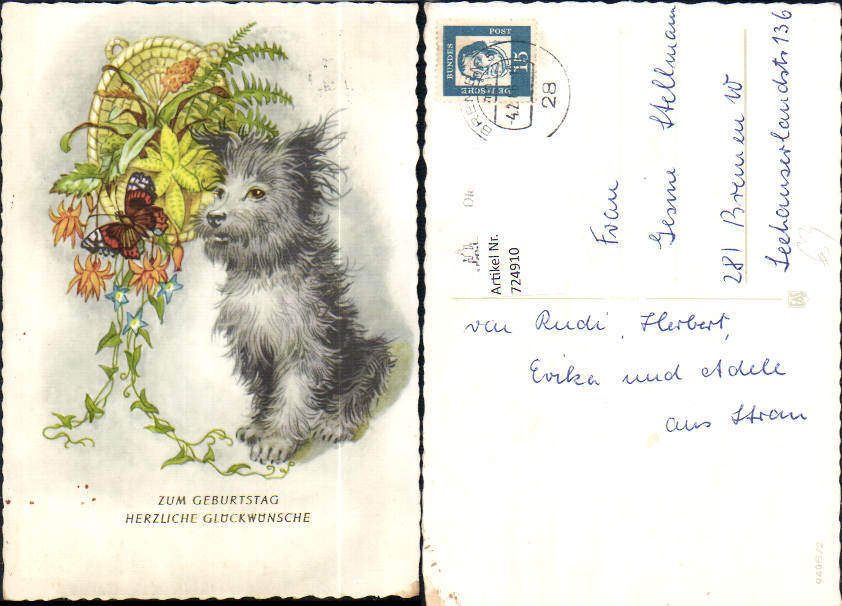 ZUM GEBURTSTAG
HERZLICHE GLÜCKWÜNSCHE
DEUTSCHE
BUNDES
POST
15
28
Die
Artikel Nr.
724910
Frau
Gesine Stellmann
281 Bremen W
Seehauserlandstr 136
von Rudi, Herbert,
Erika und Adele
aus Strom
9495/2